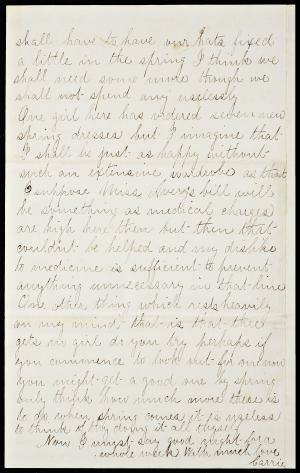 shall have to have our hats fixed
a little in the spring I think we
shall need some more though we
shall not spend any uselessly
One girl here has ordered seven new
spring dresses but I imagine that
I shall be just as happy without
such an extensive wardrobe as that
I suppose Miss bill will
be something as medical charges
are high here then but then that
couldn't be helped and my dislike
to medicine is sufficient to prevent
anything unnecessary in that line
One other thing which rests heavily
on my mind that is that thee
gets no girl do you try perhaps if
you commence to look out for one now
you might get a good one by spring
only think how much more there is
to do when spring comes it is useless
to think of thy doing it all thyself
Now I must say good night for a
whole week With much love
Carrie